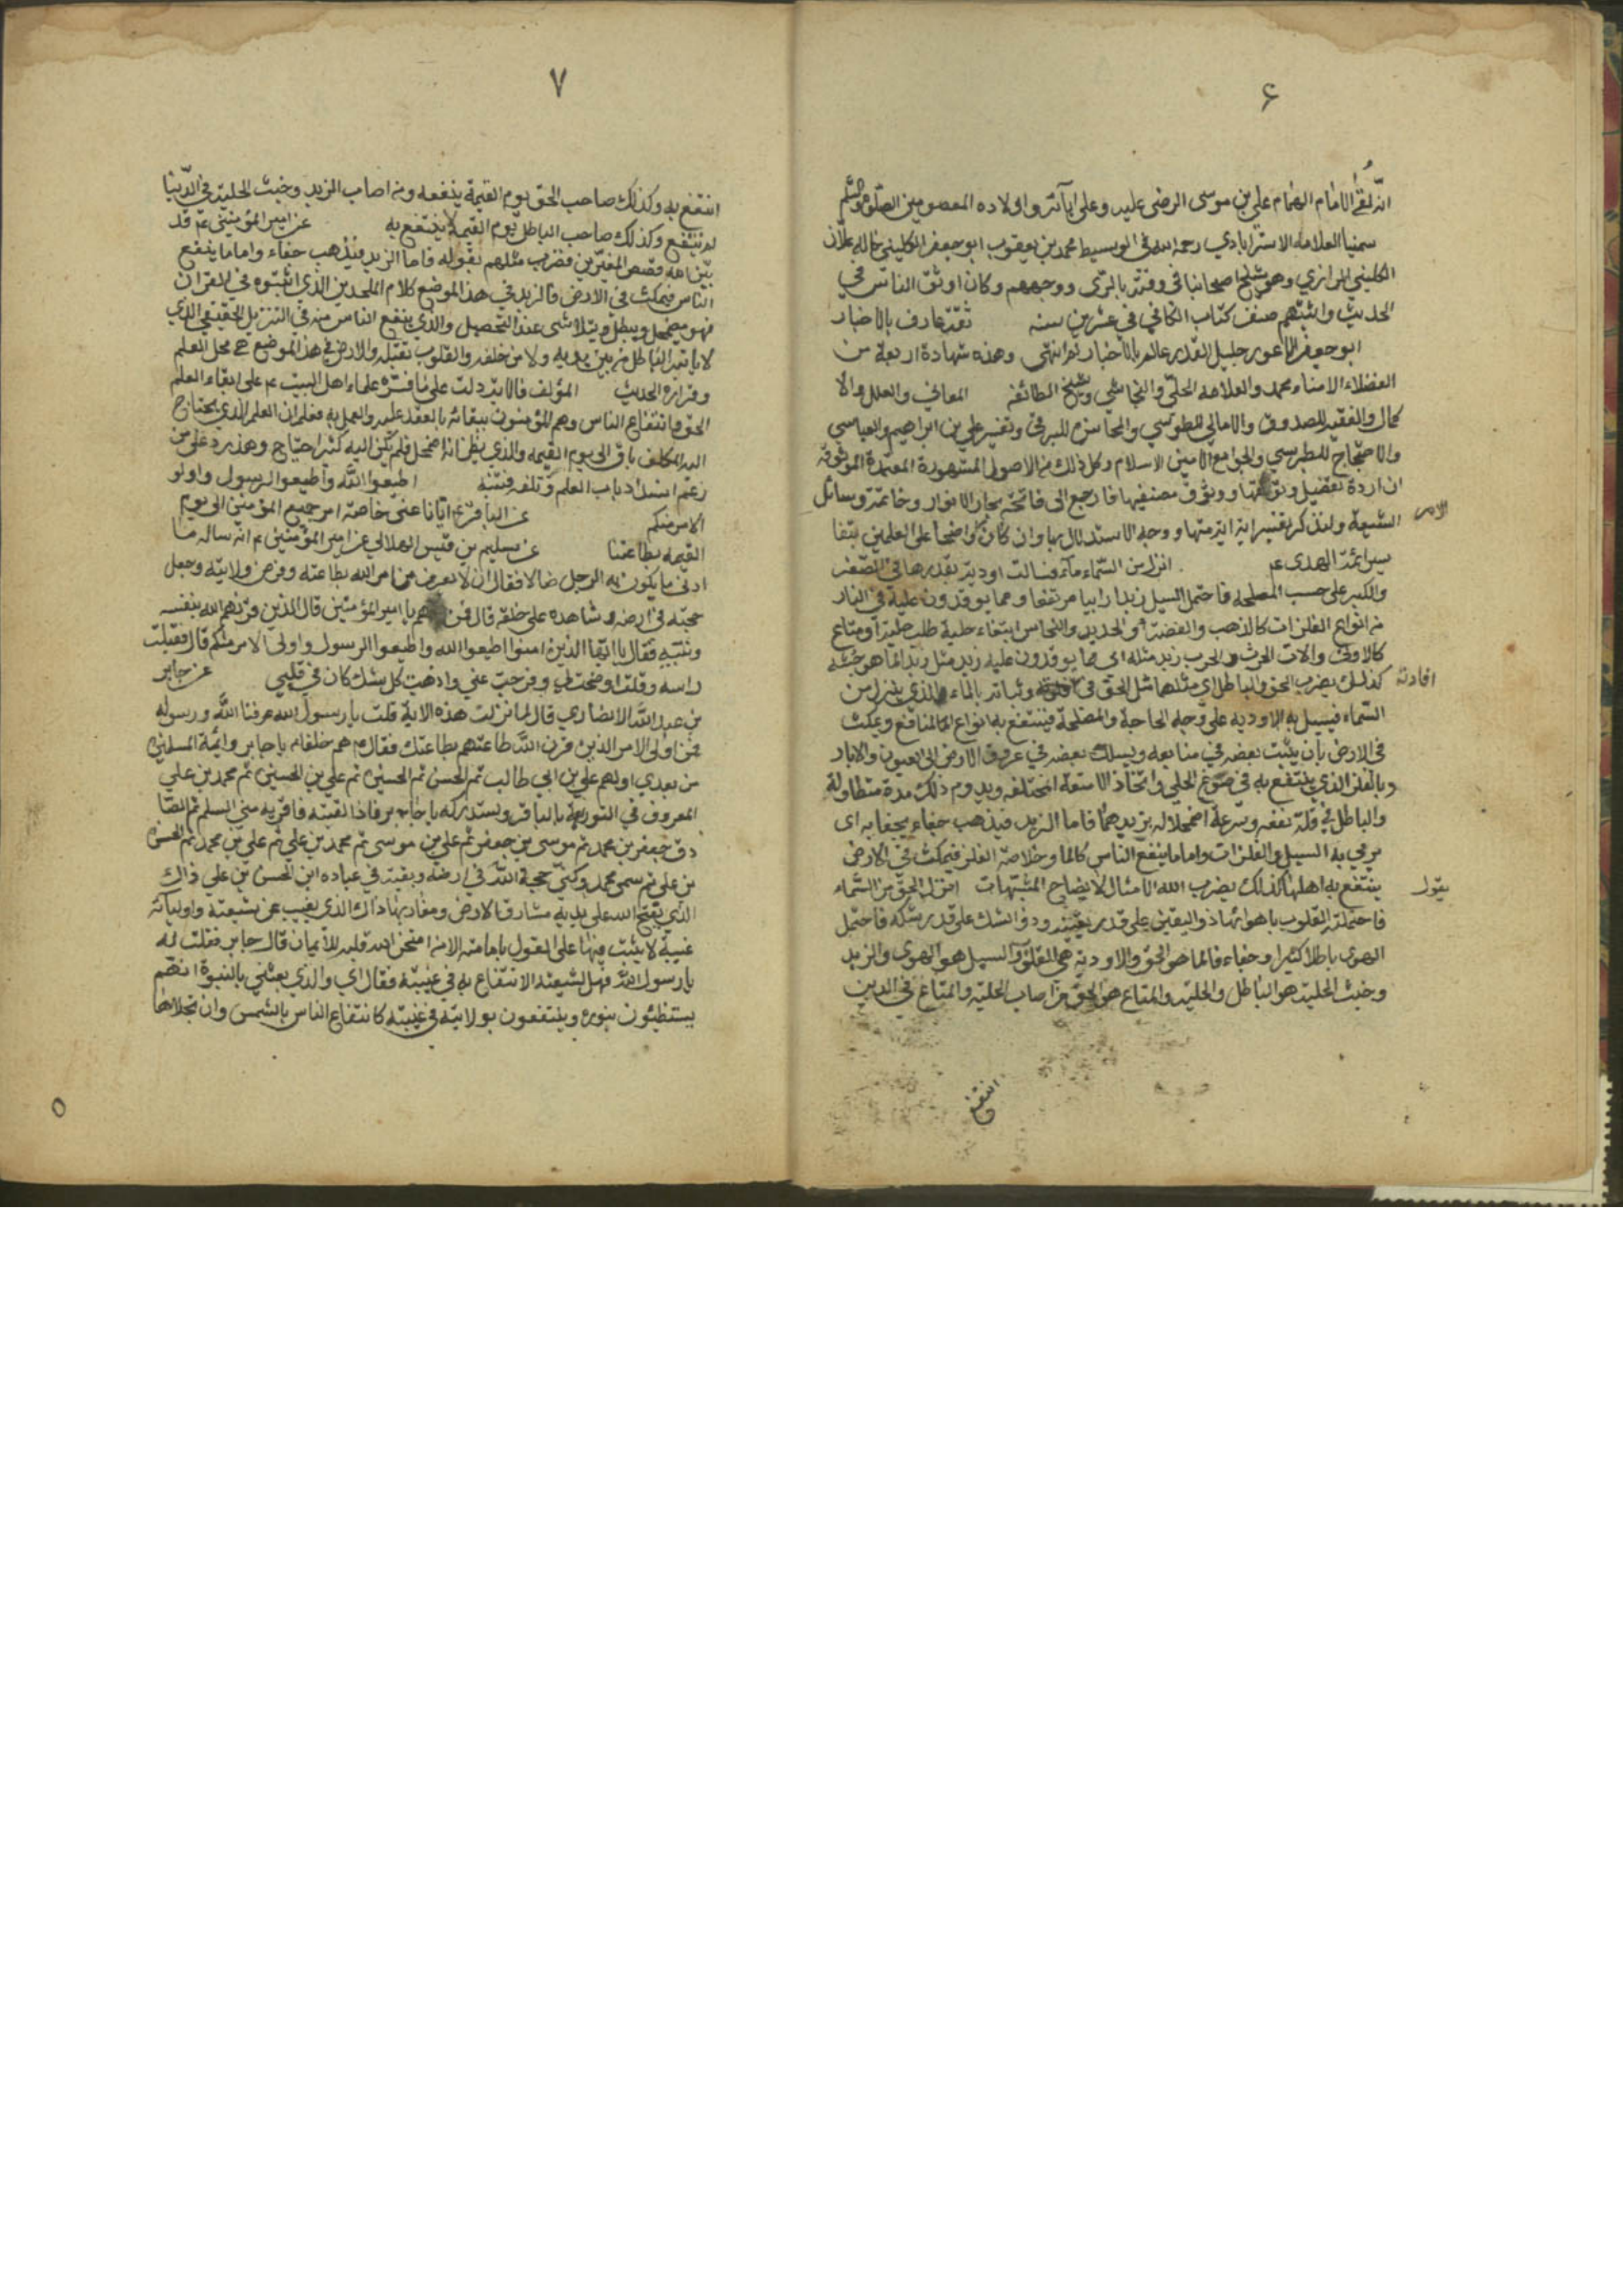 ۶
انه لفتى الامام الهمام علي بن موسى الرضي عليه وعلى آبائه واولاده المعصومين الصلوة والسلم
سمينا العلامه الاسترابادي رحمه الله في الوسيط محمد بن يعقوب ابو جعفر الكليني خاله علان
الكليني الرازي وهو شيخ اصحابنا في وقته بالري ووجههم وكان اوثق الناس في
الحديث واثبتهم صنف كتاب الكافي في عشرين سنه ثقة عارف بالاخبار
ابو جعفر الاعور جليل القدر عالم بالاخبار انتهى وهذه شهادة اربعة من
الفضلاء الامناء محمد والعلامه الحلي والنجاشي وشيخ الطائفه المعاني والعلل والا
كمال والفقيه للصدوق والامالي للطوسي والمحاسن للبرقي وتفسير علي بن ابراهيم والعياشي
والاحتجاج للطبرسي والجوامع الامين الاسلام وكل ذلك من الاصول المشهورة المعتمدة الموثوقة
ان اردة تفصيل وثوقها ووثوق مصنفيها فارجع الى فاتحة بحار الانوار وخاتمة وسائل
الشيعة ولنذكر تفسير اية اية منها ووجه الاستدلال بها وان كان واضحا على العلمين بتفا
الامر
سير ائمة الهدى ع انزل من السماء ماء فسالت اودية بقدرها في الصغر
والكبر على حسب المصلحه فاحتمل السيل زبدا رابيا مرتفعا ومما يوقدون عليه في النار
من انواع الفلزات كالذهب والفضة والحديد والنحاس ابتغاء حلية طلب حلية او متاع
كالاواني والات الحرث والحرب زبد مثله اي مما يوقدون عليه زبد مثل زبد الماء هو خبثه
كذلك يضرب الحق والباطل اي مثلهما مثل الحق في وثباته بالماء الذي ينزل من
افادته
السماء فيسيل به الاوديه على وجه الحاجة والمصلحة فينتفع به انواع المنافع ويمكث
في الارض بان يثبت بعضه في منابعه ويسلك بعضه في عروق الارض الى العيون والابار
وبالفلز الذي ينتفع به في صوغ الحلي واتخاذ الامتعة المختلفه ويدوم ذلك مدة متطاولة
والباطل في قلة نفعه وسرعة اضمحلاله بزبدهما فاما الزبد فيذهب جفاء يجفا به اى
يرمي به السيل والفلزات واما ما ينفع الناس كالماء وخلاصة الفلز فيمكث في الارض
ينتفع به اهلها كذلك يضرب الله الامثال لايضاح المشتبهات انزل الحق من السماء
يقول
فاحتملته القلوب باهوائها ذو اليقين على قدر يقينه وذو الشك على قدر شكه فاحتمل
الهوى باطلا كثيرا وجفاء فالماء هو الحق والاودية هي القلوب والسيل هو الهوى والزبد
وخبث الحلية هو الباطل والحلية والمتاع هو الحق من اصاب الحلية والمتاع في الدين
انتفع
٧
انتفع به وكذلك صاحب الحق يوم القيمة ينفعه ومن اصاب الزبد وخبث الحلية في الدنيا
لم ينتفع وكذلك صاحب الباطل يوم القيمة لا ينتفع به عن امير المؤمنين ع قد
بين الله قصص المغيرين فضرب مثلهم بقوله فاما الزبد فيذهب جفاء واما ما ينفع
الناس فيمكث في الارض فالزبد في هذا الموضع كلام الملحدين الذي اثبتوه في القران
فهو يضمحل ويبطل ويتلاشى عند التحصيل والذي ينفع الناس منه في التنزيل الحقيقي الذي
لا ياتيه الباطل من بين يديه ولا من خلفه والقلوب تقبله والارض في هذا الموضع هي محل العلم
وقراره الحديث المؤلف فالاية دلت على ما فسره علماء اهل البيت ع على ابقاء العلم
الحق وانتفاع الناس وهم المؤمنون ببقائه بالعقد عليه والعمل به فعلم ان العلم الذي يحتاج
اليه المكلف باق الى يوم القيمه والذي يظن انه اضمحل فلم يكن اليه كثير احتياج وهذا رد على من
زعم انسداد باب العلم وتلفه فتنبه اطيعوا الله واطيعوا الرسول واولو
الامر منكم عن الباقر ع ايانا عنى خاصة امر جميع المؤمنين الى يوم
القيمه بطاعتنا عن سليم بن قيس الهلالي عن امير المؤمنين ع انه ساله ما
ادنى ما يكون به الرجل ضالا فقال ان لا يعرف من امر الله بطاعته وفرض ولايته وجعل
حجته في ارضه وشاهده على خلقه قال فمن هم يا امير المؤمنين قال الذين قرنهم الله بنفسه
ونبيه فقال يا ايها الذين امنوا اطيعوا الله واطيعوا الرسول واولي الامر منكم قال فقبلت
راسه وقلت اوضحت لي وفرجت عني واذهبت كل شك كان في قلبي عن جابر
بن عبد الله الانصاري قال لما نزلت هذه الاية قلت يا رسول الله عرفنا الله ورسوله
فمن اولى الامر الذين قرن الله طاعتهم بطاعتك فقال ص هم خلفائي يا جابر وائمة المسلمين
من بعدي اولهم علي بن ابي طالب ثم الحسن ثم الحسين ثم علي بن الحسين ثم محمد بن علي
المعروف في التورية بالباقر وستدركه يا جابر فاذا لقيته فاقريه مني السلم ثم الصا
دق جعفر بن محمد ثم موسى بن جعفر ثم علي بن موسى ثم محمد بن علي ثم علي بن محمد ثم الحسن
بن علي ثم سمي محمد وكني حجة الله في ارضه وبقيته في عباده ابن الحسن بن علي ذاك
الذي يفتح الله على يديه مشارق الارض ومغاربها ذاك الذي يغيب عن شيعته واوليائه
غيبة لا يثبت فيها على القول بامامته الا من امتحن الله قلبه للايمان قال جابر فقلت له
يا رسول الله فهل لشيعته الانتفاع به في غيبته فقال اي والذي بعثني بالنبوة انهم
يستضيئون بنوره وينتفعون بولايته في غيبته كانتفاع الناس بالشمس وان تجللها
٥